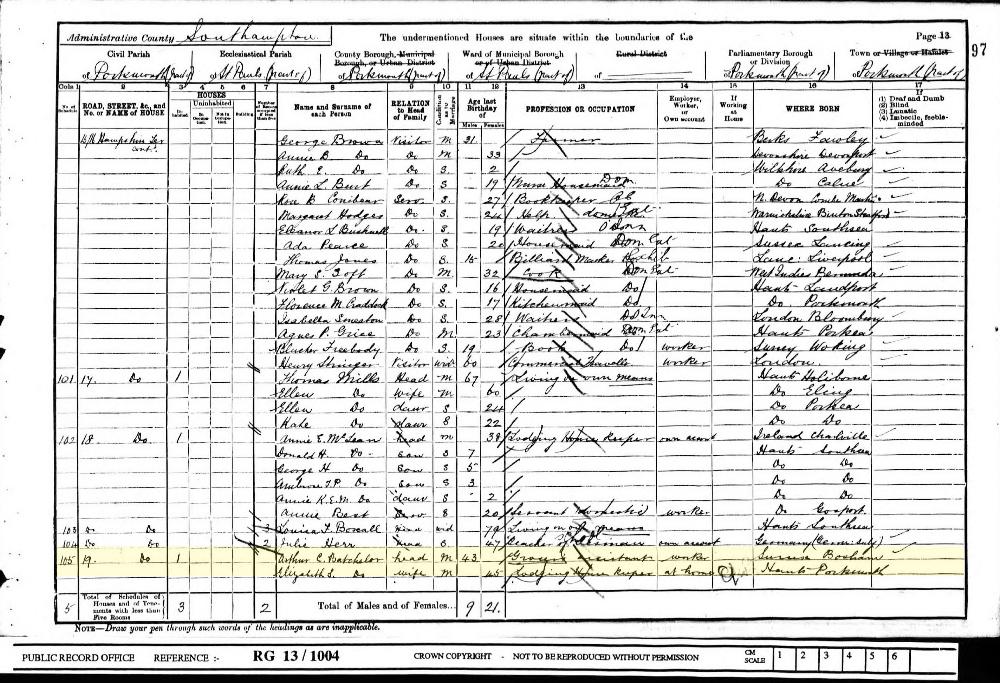 Administrative County Southampton
The undermentioned Houses are situate within the boundaries of the
Page 13
97
Civil Parish
of Portsmouth (part of)
Ecclesiastical Parish
of St Pauls (part of)
County Borough, Municipal Borough, or Urban District
of Portsmouth (part of)
Ward of Municipal Borough or of Urban District
of St Pauls (part of)
Rural District
of
Parliamentary Borough or Division
of Portsmouth (part of)
Town or Village or Hamlet
of Portsmouth (part of)
Cols 1 2 3 4 5 6 7 8 9 10 11 12 13 14 15 16 17
No. of Schedule
ROAD, STREET, &c., and No. or NAME of HOUSE
HOUSES
Inhabited
Uninhabited
In Occupation
Not in Occupation
Building
Name and Surname of each Person
RELATION to Head of Family
Condition as to Marriage
Age last Birthday of
Males Females
PROFESSION OR OCCUPATION
Employer, Worker, or Own account
If Working at Home
WHERE BORN
If (1) Deaf and Dumb (2) Blind (3) Lunatic (4) Imbecile, feeble-minded
Hampshire Ter cont. George Brown Visitor M 31 Berks Fawley
Annie B. Do Do M 33 Devonshire Devonport
Ruth E. Do Do S. 2 Wiltshire Avebury
Annie L. Burt Do S 19 Nurse Housemaid Dom Do Calne
B Conibear Serv S. 27 Bookkeeper N. Devon Combe Martin
Margaret Hodges Do S 24 Help Warwickshire
Eleanor L Do. S 19 Waitress Hants Southsea
Ada Pearce Do S 20 Housemaid Sussex Lancing
Thomas Jones Do S. 15 Billiard Marker Lanc: Liverpool
Mary S. Do M 32 Cook West Indies Bermuda
Violet G. Brown Do S 16 Housemaid Do Hants Landport
Florence M. Craddock Do S 17 Kitchenmaid Do Do Portsmouth
Isabella Do S. 28 Waitress London Bloomsbury
Agnes P. Grice Do M 23 Chambermaid Hants Portsea
Freebody Do S. 19 Do worker Surrey Woking
Henry Visitor wid 60 Commercial Traveller worker London
101 17 Do 1 Thomas Mills Head M 67 Living on own means Hants
Ellen Do wife M 60 Do Eling
Ellen Do daur S 24 Do Portsea
Kate Do daur S 22 Do Do
102 18 Do. 1 Annie E. McLean head m 38 Lodging House Keeper own account Ireland Charleville
Donald H. Do. Son S 7 Hants Southsea
George H Do Son S 5 Do Do
Ambrose T.P. Do Son S 3 Do Do
Annie K.E.M. Do daur S 2 Do Do
Annie Best Serv. S 20 Servant domestic worker Do Gosport
103 Do Do 3 Louisa F. Boxall Head wid 79 Living on own means Hants Southsea
104 Do Do 2 Julie Herr head S 47 Teacher of German own account Germany
105 19. Do 1 Arthur C. Batchelor head M 43 Grocer's assistant worker Sussex Bosham
Elizabeth S. Do wife M 45 Lodging House Keeper at home Hants Portsmouth
5 Total of Schedules of Houses and of Tenements with less than Five Rooms 3 2 Total of Males and of Females... 9 21.
NOTE—Draw your pen through such words of the headings as are inapplicable.
PUBLIC RECORD OFFICE REFERENCE :- RG 13/1004 CROWN COPYRIGHT - NOT TO BE REPRODUCED WITHOUT PERMISSION CM SCALE 1 2 3 4 5 6